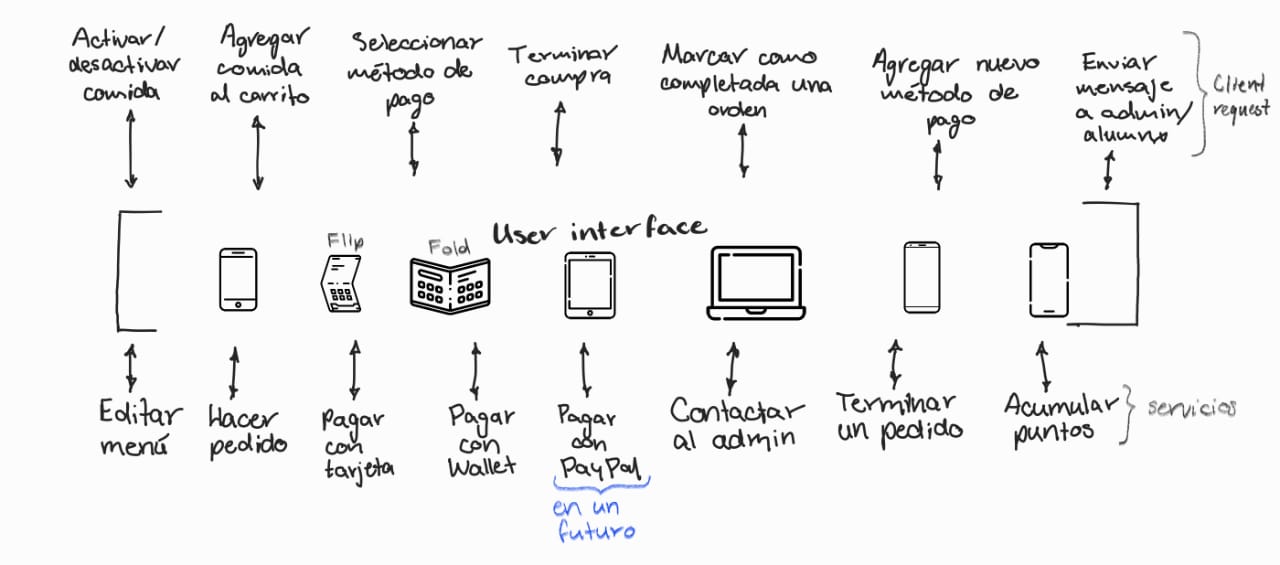 Activar/
desactivar
comida
Agregar
comida
al carrito
Seleccionar
método de
pago
Terminar
compra
Marcar como
completada una
orden
Agregar nuevo
método de
pago
Enviar
mensaje
a admin/
alumno
Client
request
User interface
Flip
Fold
Editar
menú
Hacer
pedido
Pagar
con
tarjeta
Pagar
con
Wallet
Pagar
con
PayPal
en un
futuro
Contactar
al admin
Terminar
un pedido
Acumular
puntos
servicios